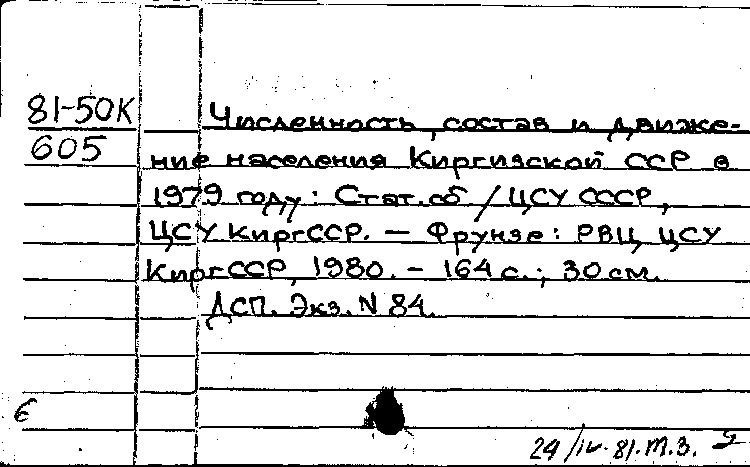 81-50К
605
Численность, состав и движе-
ние населения Киргизской ССР в
1979 году: Стат. сб / ЦСУ СССР,
ЦСУ КиргССР. — Фрунзе: РВЦ ЦСУ
КиргССР, 1980. - 164 с.; 30 см.
ДСП. Экз. N 84.
6
24/IV-81.т.З.